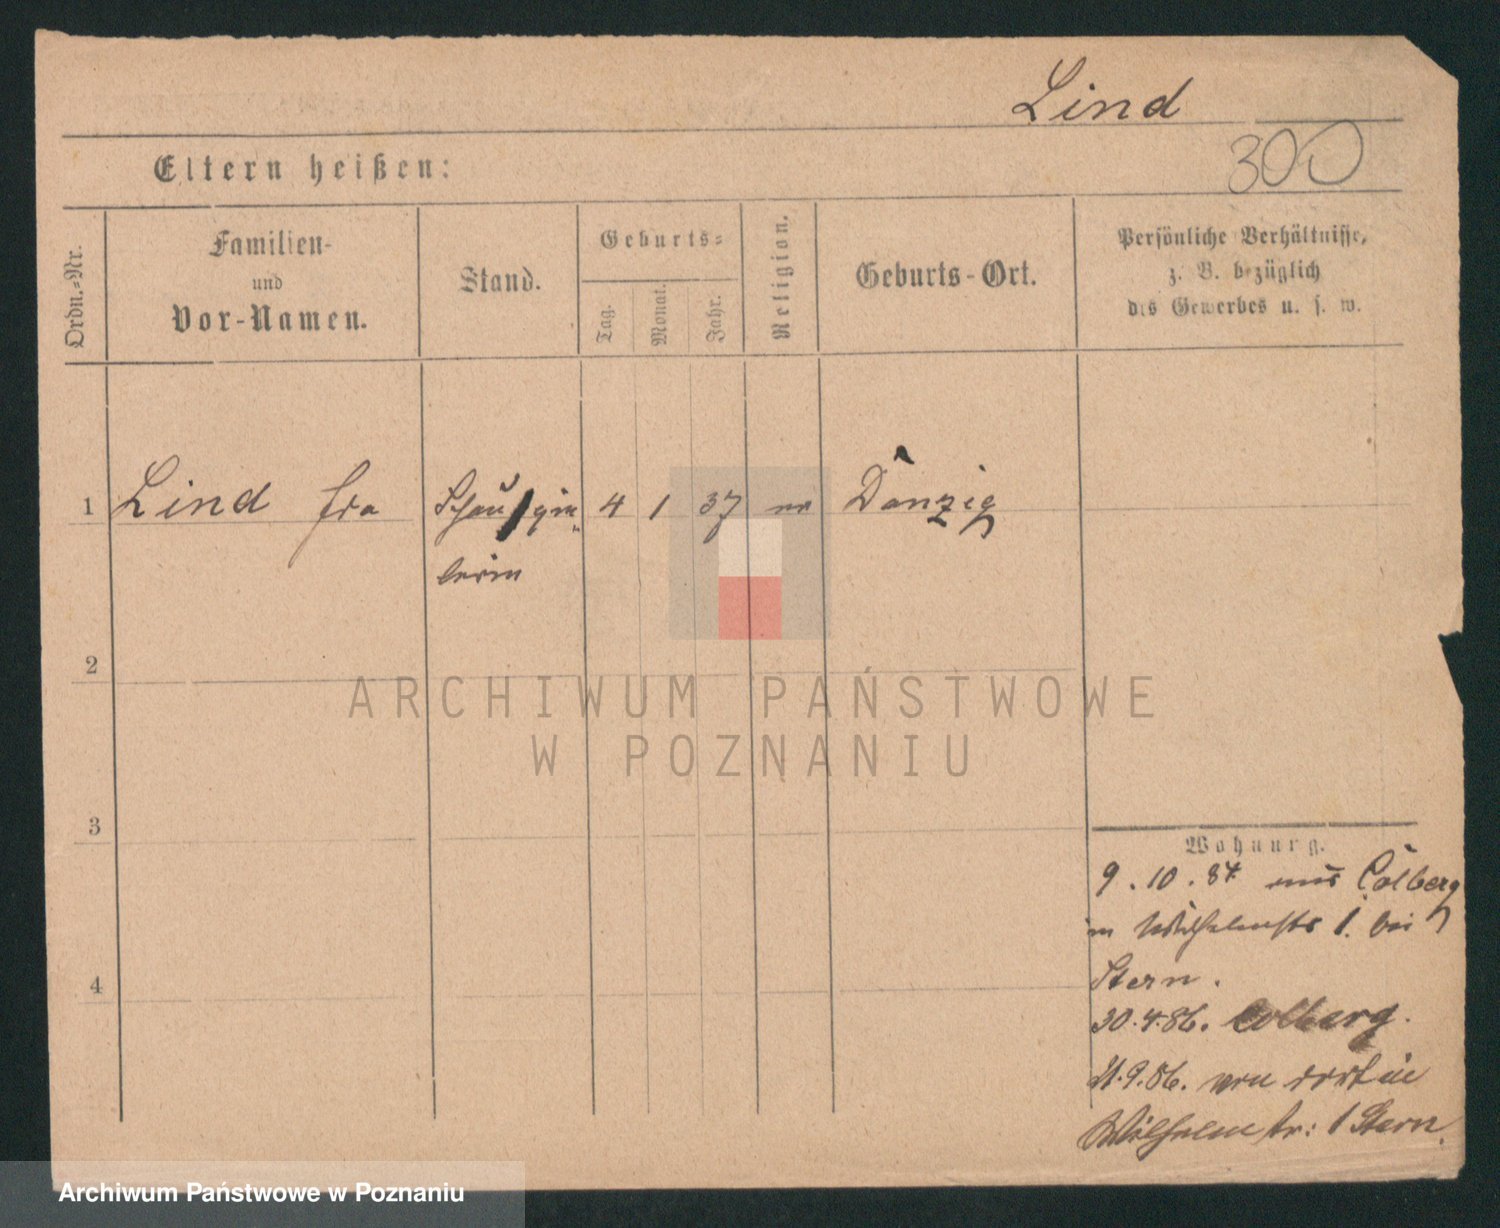 Lind
300
Eltern heißen:
Ordn.-Nr.
Familien-
und
Vor-Namen.
Stand.
Geburts-
Tag.
Monat.
Jahr.
Religion.
Geburts-Ort.
Persönliche Verhältnisse,
z. B. bezüglich
des Gewerbes u. s. w.
1 Lind Schauspie- 4 1 37 Danzig
lerin
2
3
4
Wohnung.
9.10.84 aus Colberg
in Wilhelmstr 1. bei
Stern.
30.4.86. Colberg.
21.9.86. von dort in
Wilhelmstr: 1 Stern.
ARCHIWUM PAŃSTWOWE
W POZNANIU
Archiwum Państwowe w Poznaniu